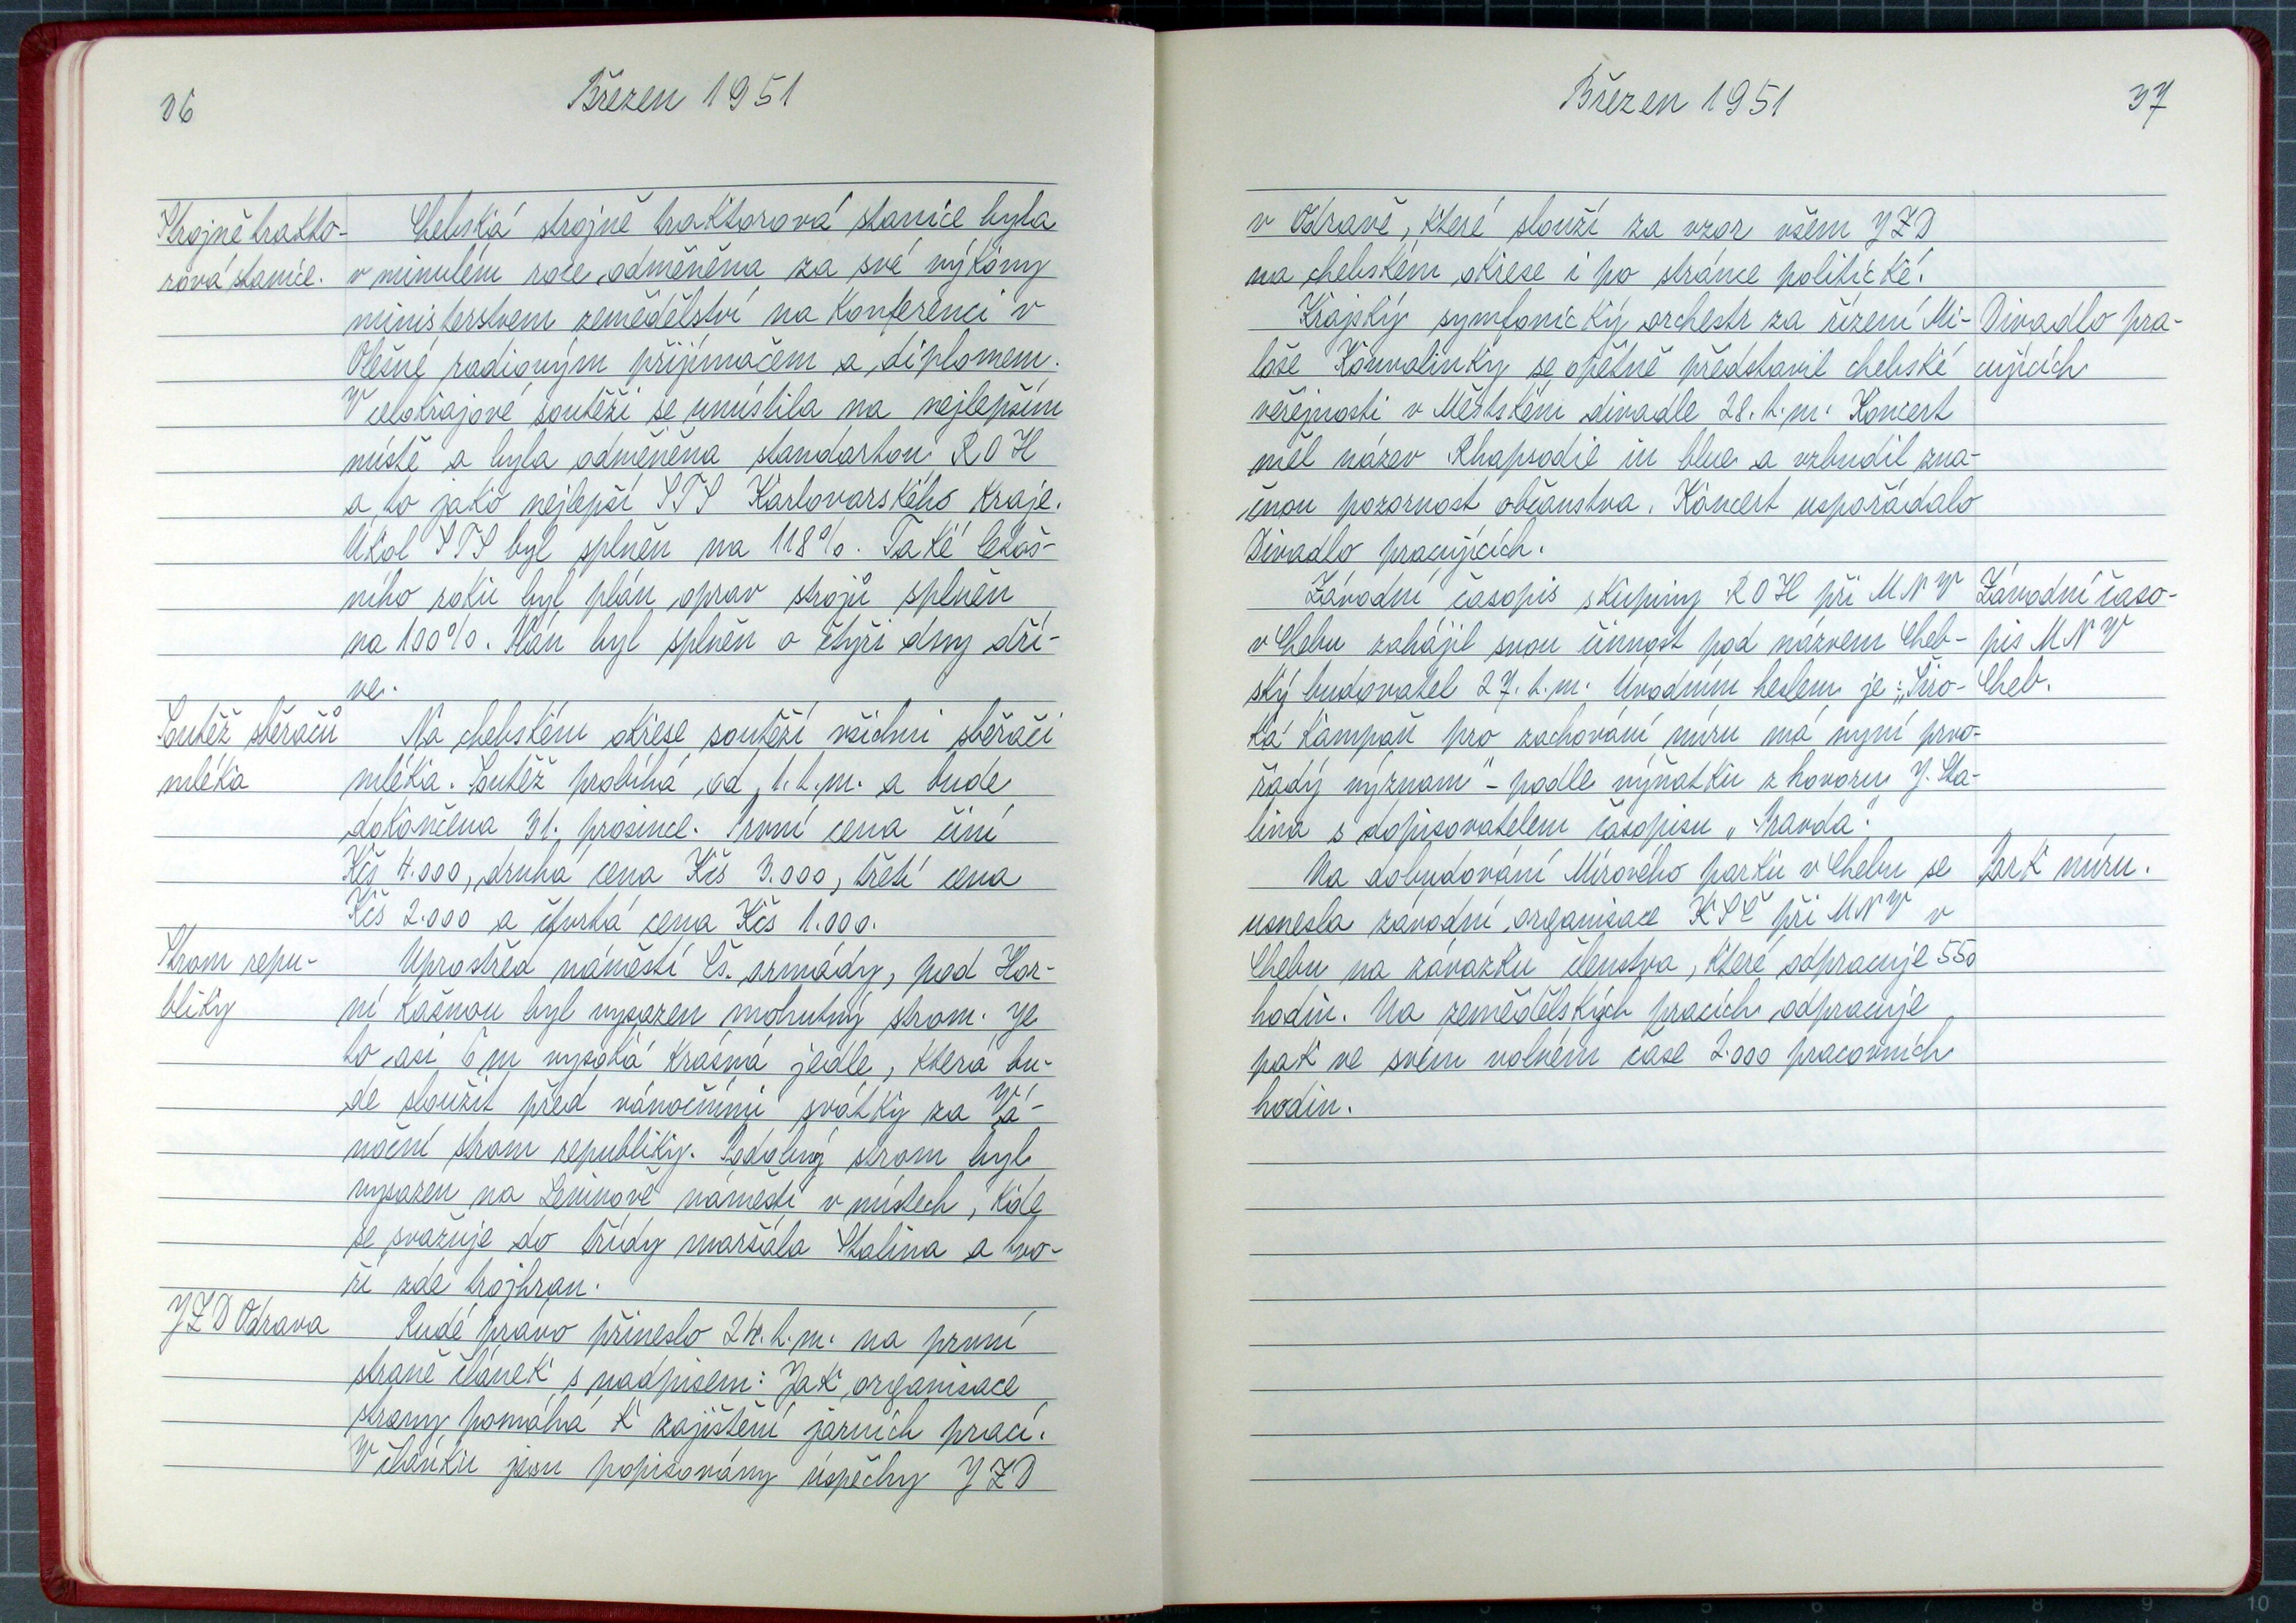 36
Březen 1951
Strojně trakto-
rová stanice.
Chebská strojně traktorová stanice byla
v minulém roce odměněna za své výkony
ministerstvem zemědělství na konferenci v
Olešné radiovým přijímačem a diplomem.
V celokrajové soutěži se umístila na nejlepším
místě a byla odměněna standartou ROH
a to jako nejlepší STS Karlovarského kraje.
Úkol STS byl splněn na 118%. Také letoš-
ního roku byl plán oprav strojů splněn
na 100%. Plán byl splněn o čtyři dny dří-
ve.
Soutěž sběračů
mléka
Na chebském okrese soutěží všichni sběrači
mléka. Soutěž probíhá od 1. t. m. a bude
dokončena 31. prosince. První cena činí
Kčs 4.000, druhá cena Kčs 3.000, třetí cena
Kčs 2.000 a čtvrtá cena Kčs 1.000.
Strom repu-
bliky
Uprostřed náměstí Čs. armády, pod Hor-
ní kašnou byl vysazen mohutný strom. Je
to asi 6 m vysoká krásná jedle, která bu-
de sloužit před vánočními svátky za Vá-
noční strom republiky. Podobný strom byl
vysazen na Leninově náměstí v místech, kde
se svažuje do třídy maršála Stalina a tvo-
ří zde trojhran.
JZD Odrava
Rudé právo přineslo 24. t. m. na první
straně článek s nadpisem: Jak organisace
strany pomáhá k zajištění jarních prací.
V článku jsou popisovány úspěchy JZD
Březen 1951
37
v Odravě, které slouží za vzor všem JZD
na chebském okrese i po stránce politické.
Krajský symfonický orchestr za řízení Mi-
loše Konvalinky se opětně představil chebské
veřejnosti v Městském divadle 28. t. m. Koncert
měl název Rhapsodie in blue a vzbudil zna-
čnou pozornost občanstva. Koncert uspořádalo
Divadlo pracujících.
Divadlo pra-
cujících
Závodní časopis skupiny ROH při MNV
v Chebu zahájil svou činnost pod názvem Cheb-
ský budovatel 27. t. m. Úvodním heslem je: „Širo-
ká kampaň pro zachování míru má nyní prvo-
řadý význam" - podle výňatku z hovoru J. Sta-
lina s dopisovatelem časopisu „Pravda".
Závodní časo-
pis MNV
Cheb.
Na dobudování Mírového parku v Chebu se
usnesla závodní organisace KSČ při MNV v
Chebu na závazku členstva, které odpracuje 550
hodin. Na zemědělských pracích odpracuje
pak ve svém volném čase 2.000 pracovních
hodin.
Park míru.